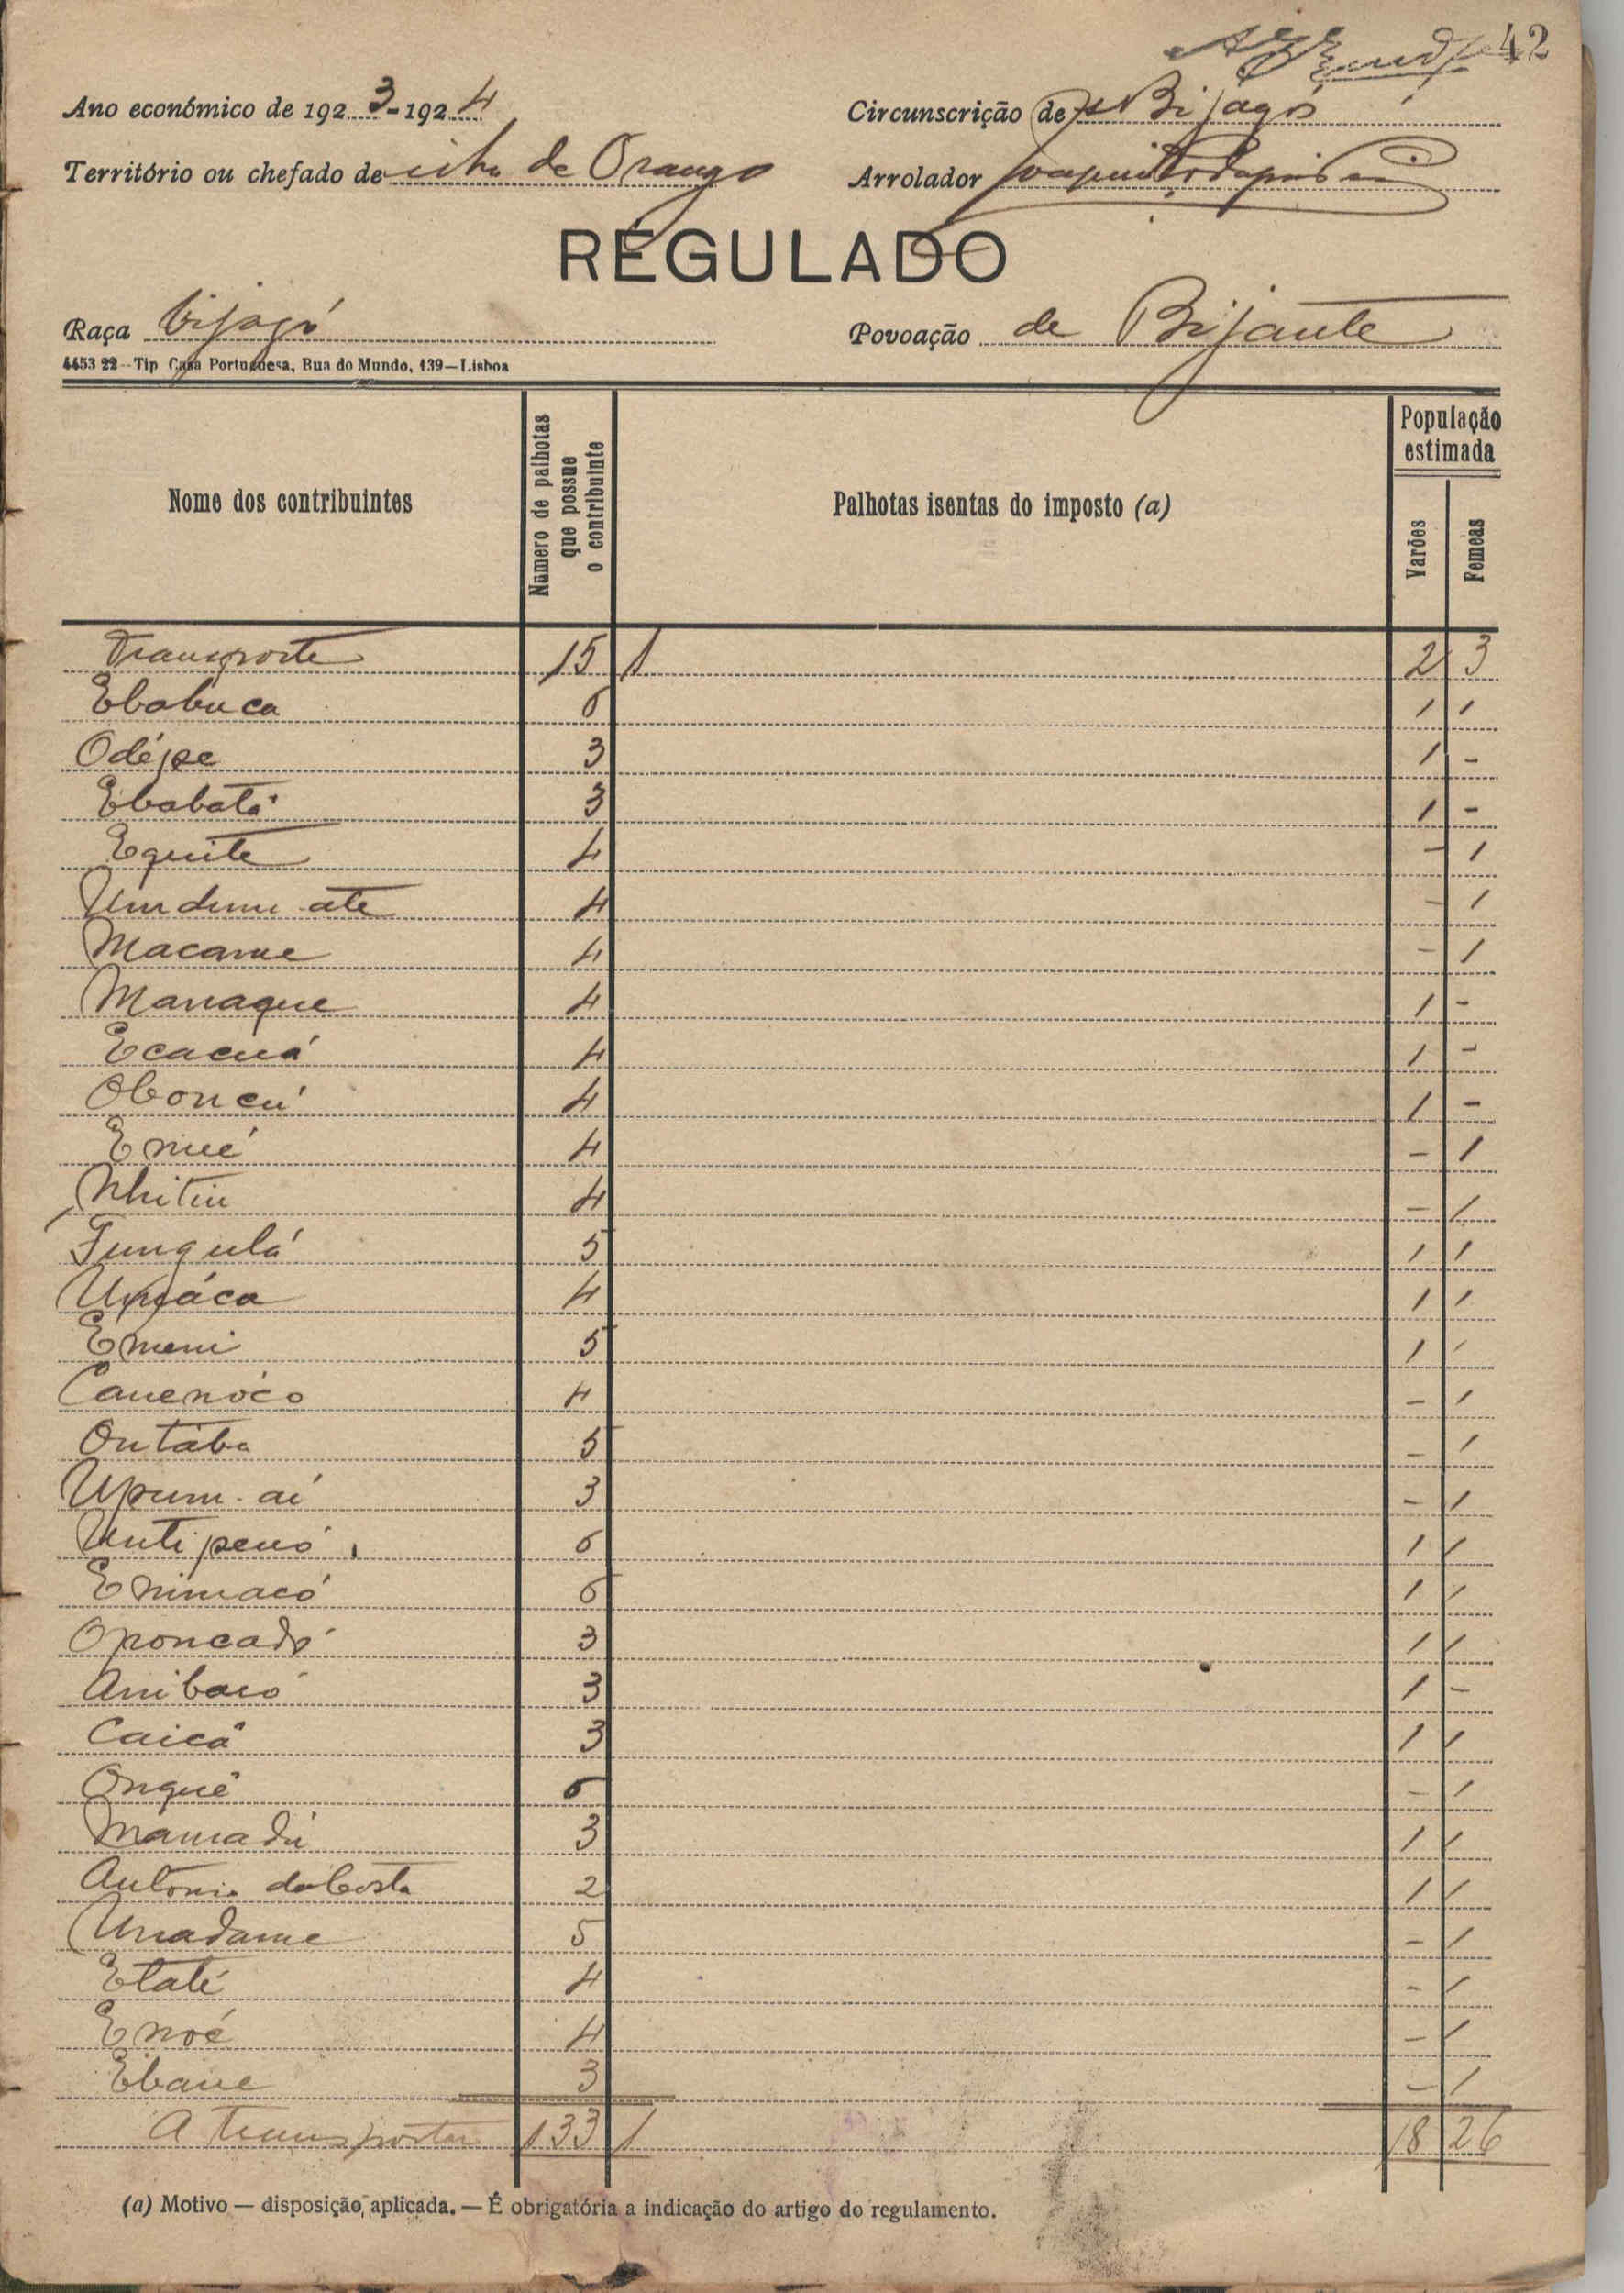 42
Ano económico de 1923-1924 Circunscrição de Bijagós
Território ou chefado de ilha de Orango Arrolador
REGULADO
Raça bijagó Povoação de Bijante
4453 22--Tip Casa Portuguesa, Rua do Mundo, 139—Lisboa
Nome dos contribuintes Número de palhotas que possue o contribuinte Palhotas isentas do imposto (a) População estimada Varões Femeas
Transporte 15 1 2 3
Ebabuca 6 1 1
Odépe 3 1 -
Ebabatá 3 1 -
Equite 4 - 1
Umdumate 4 - 1
Macame 4 - 1
Manaque 4 1 -
Ecacuá 4 1 -
Oboncú 4 1 -
Enué 4 - 1
Nhitiu 4 - 1
Fungulá 5 1 1
Upáca 4 1 1
Emeni 5 1 1
Canenóco 4 - 1
Ontába 5 - 1
Upum-ai 3 - 1
Untipenó 6 1 1
Enimacó 6 1 1
Oponcadó 3 1 1
Anibaió 3 1 -
Caicâ 3 1 1
Onquê 6 - 1
Mamadú 3 1 1
Antonio da Costa 2 1 1
Unadame 5 - 1
Etaté 4 - 1
Enoé 4 - 1
Ebane 3 - 1
A transportar 133 1 18 26
(a) Motivo — disposição aplicada. — É obrigatória a indicação do artigo do regulamento.